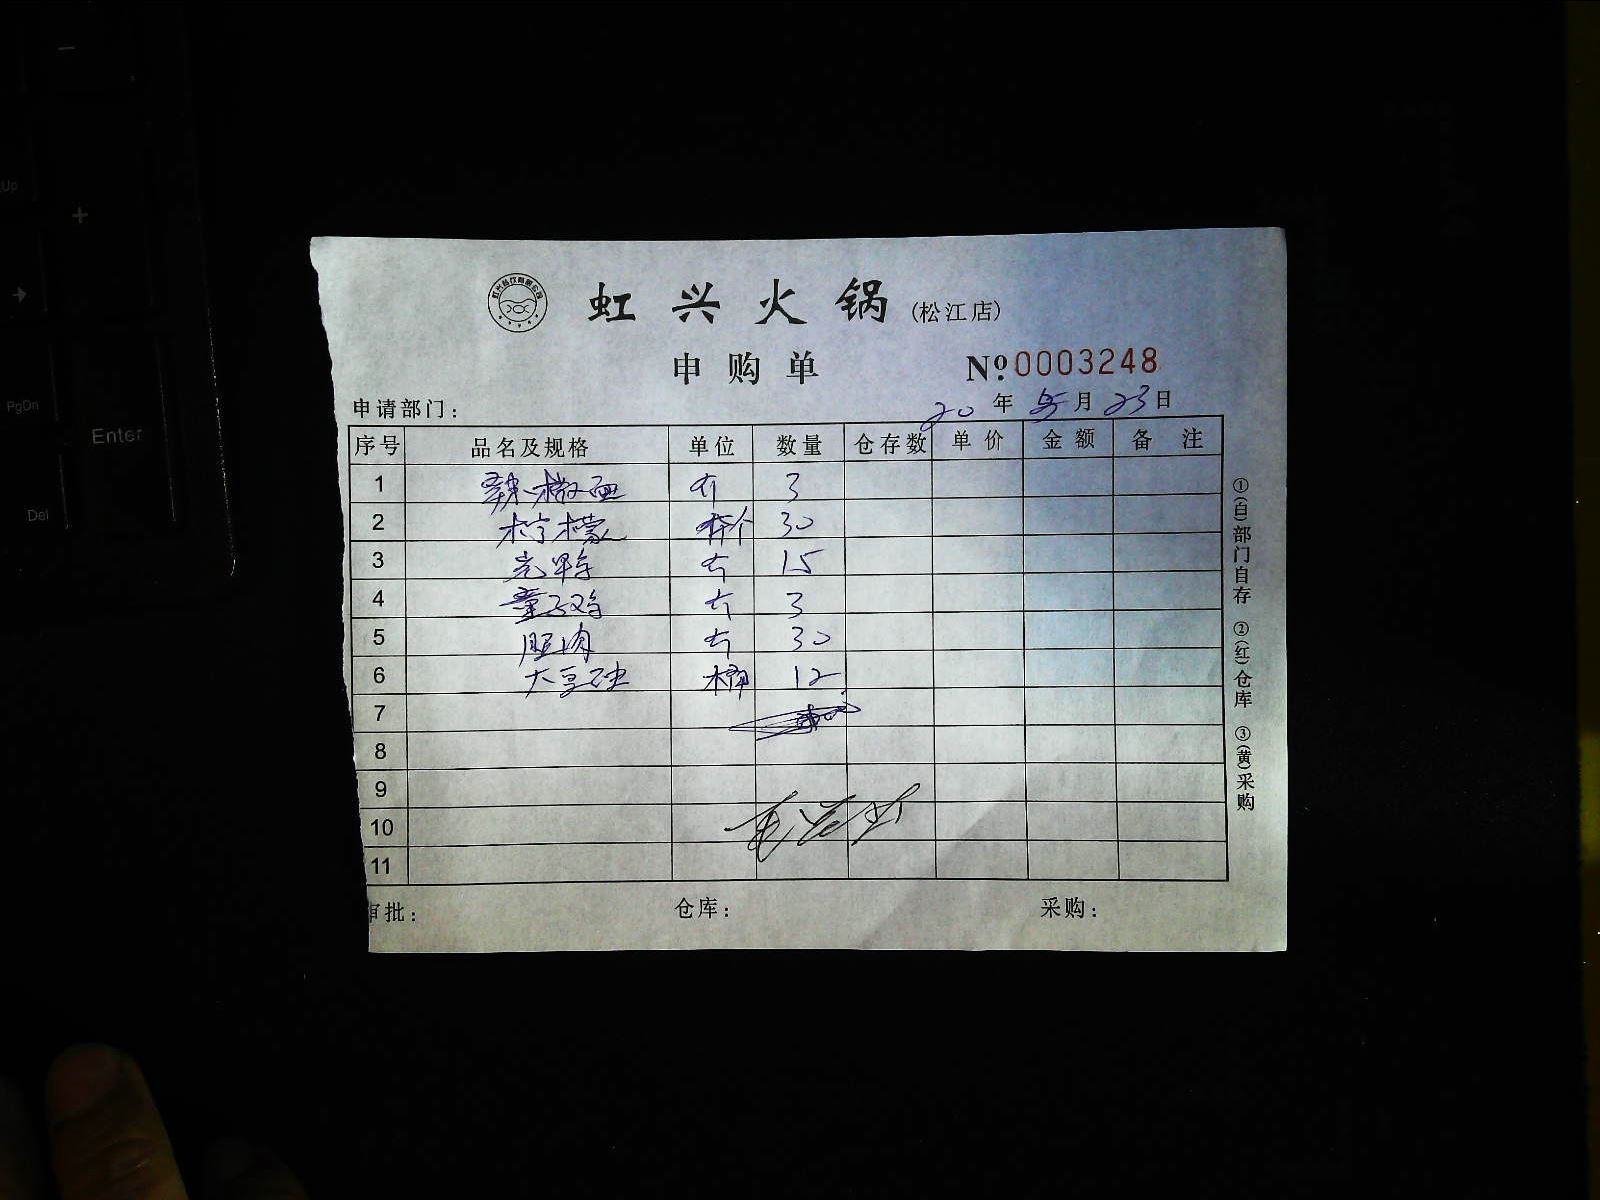 虹兴火锅(松江店)
申购单 Nº0003248
申请部门: 20年 月23日
序号 品名及规格 单位 数量 仓存数 单价 金额 备注
1 辣椒面 斤 3
2 柠檬 个 30
3 光鸭 斤 15
4 童子鸡 斤 3
5 腿肉 斤 30
6 大豆油 桶 12
7
8
9
10
11
审批: 仓库: 采购:
①(白)部门自存 ②(红)仓库 ③(黄)采购
Up
PgDn
Enter
Del